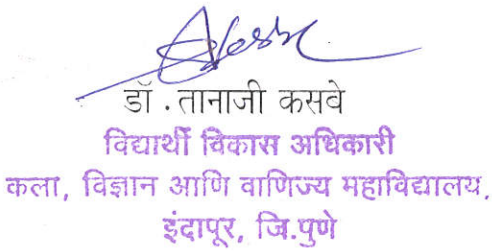 डॉ . तानाजी कसबे
विद्यार्थी विकास अधिकारी
कला, विज्ञान आणि वाणिज्य महाविद्यालय,
इंदापूर, जि.पुणे